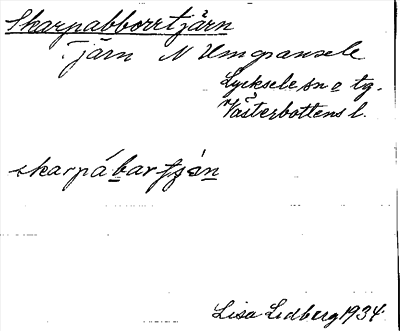 Skarpabborrtjärn
Tjärn N Umgransele
Lycksele sn o tg.
Västerbottens l.
skarpábartján
Lisa Lidberg 1934